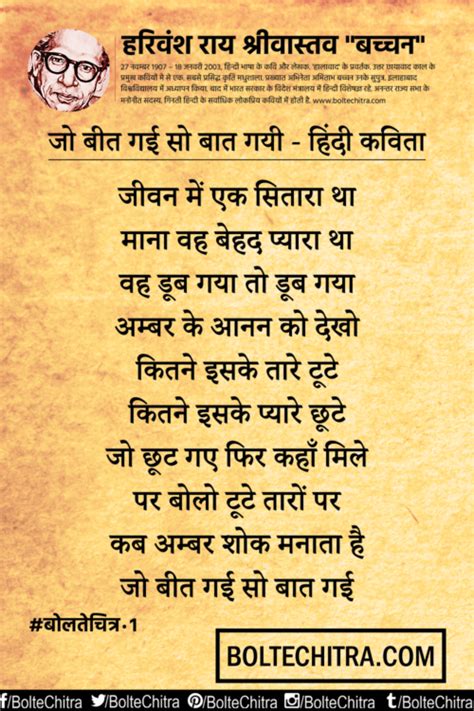 हरिवंश राय श्रीवास्तव "बच्चन"
27 नवम्बर 1907 – 18 जनवरी 2003, हिन्दी भाषा के कवि और लेखक. 'हालावाद' के प्रवर्तक. उत्तर छायावाद काल के
प्रमुख कवियों मे से एक. सबसे प्रसिद्ध कृति मधुशाला. प्रख्यात अभिनेता अमिताभ बच्चन उनके सुपुत्र. इलाहाबाद
विश्वविद्यालय में अध्यापन किया. बाद में भारत सरकार के विदेश मंत्रालय में हिन्दी विशेषज्ञ रहे. अनन्तर राज्य सभा के
मनोनीत सदस्य. गिनती हिन्दी के सर्वाधिक लोकप्रिय कवियों में होती है. www.boltechitra.com
जो बीत गई सो बात गयी - हिंदी कविता
जीवन में एक सितारा था
माना वह बेहद प्यारा था
वह डूब गया तो डूब गया
अम्बर के आनन को देखो
कितने इसके तारे टूटे
कितने इसके प्यारे छूटे
जो छूट गए फिर कहाँ मिले
पर बोलो टूटे तारों पर
कब अम्बर शोक मनाता है
जो बीत गई सो बात गई
#बोलतेचित्र-1
BOLTECHITRA.COM
f/BolteChitra /BolteChitra /BolteChitra /BolteChitra t/BolteChitra